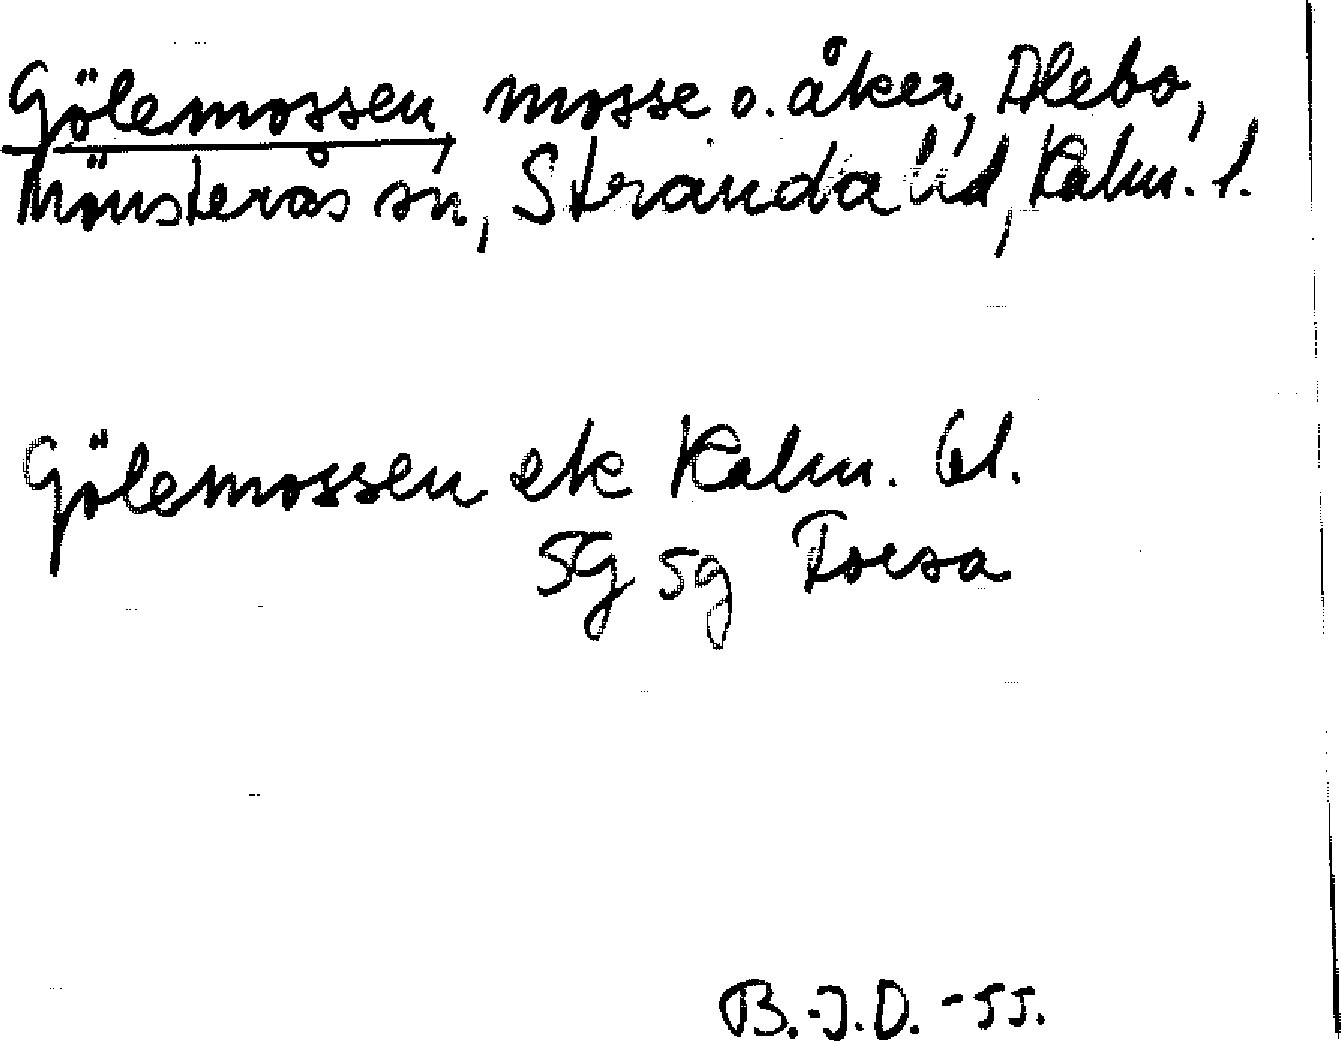 Gölemossen, mosse o. åker, Ålebo,
Mönsterås sn, Stranda hd, Kalm. l.
Gölemossen ek Kalm. 61.
5G 5g
B.-J.D. -55.